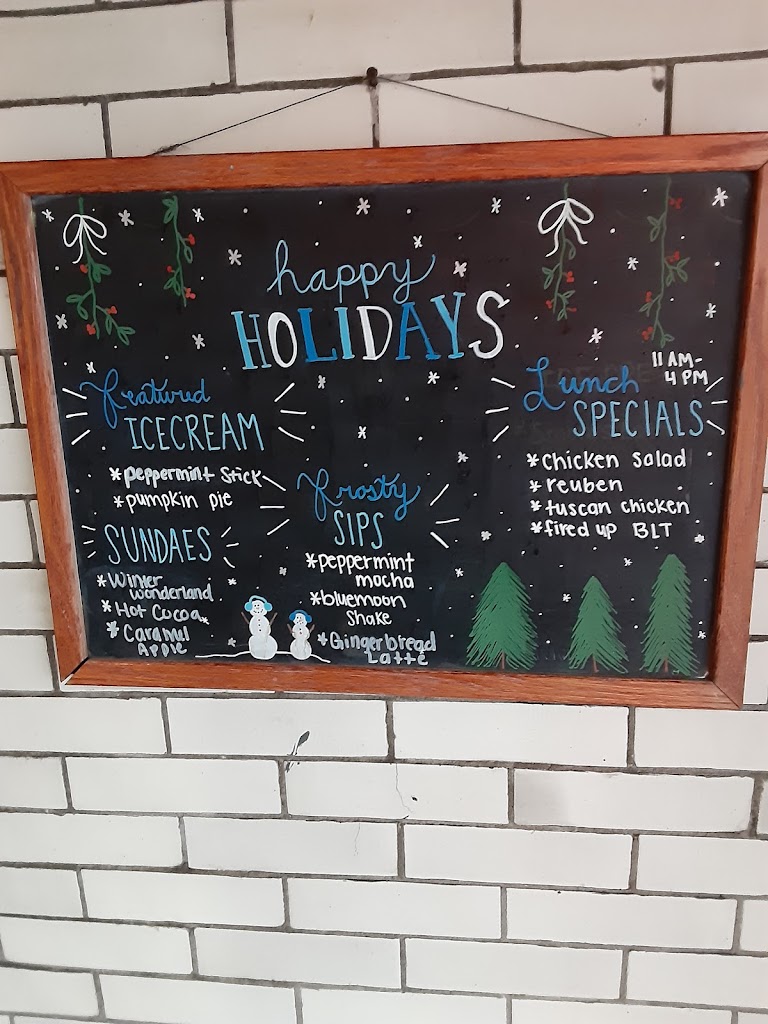 happy
HOLIDAYS
Featured
ICECREAM
*peppermint stick
*pumpkin pie
SUNDAES
*Winter
wonderland
*Hot Cocoa
*Caramel
Apple
Frosty
SIPS
*peppermint
mocha
*bluemoon
Shake
*Gingerbread
Latte
Lunch 11 AM-
4 PM
SPECIALS
*chicken salad
*reuben
*tuscan chicken
*fired up BLT